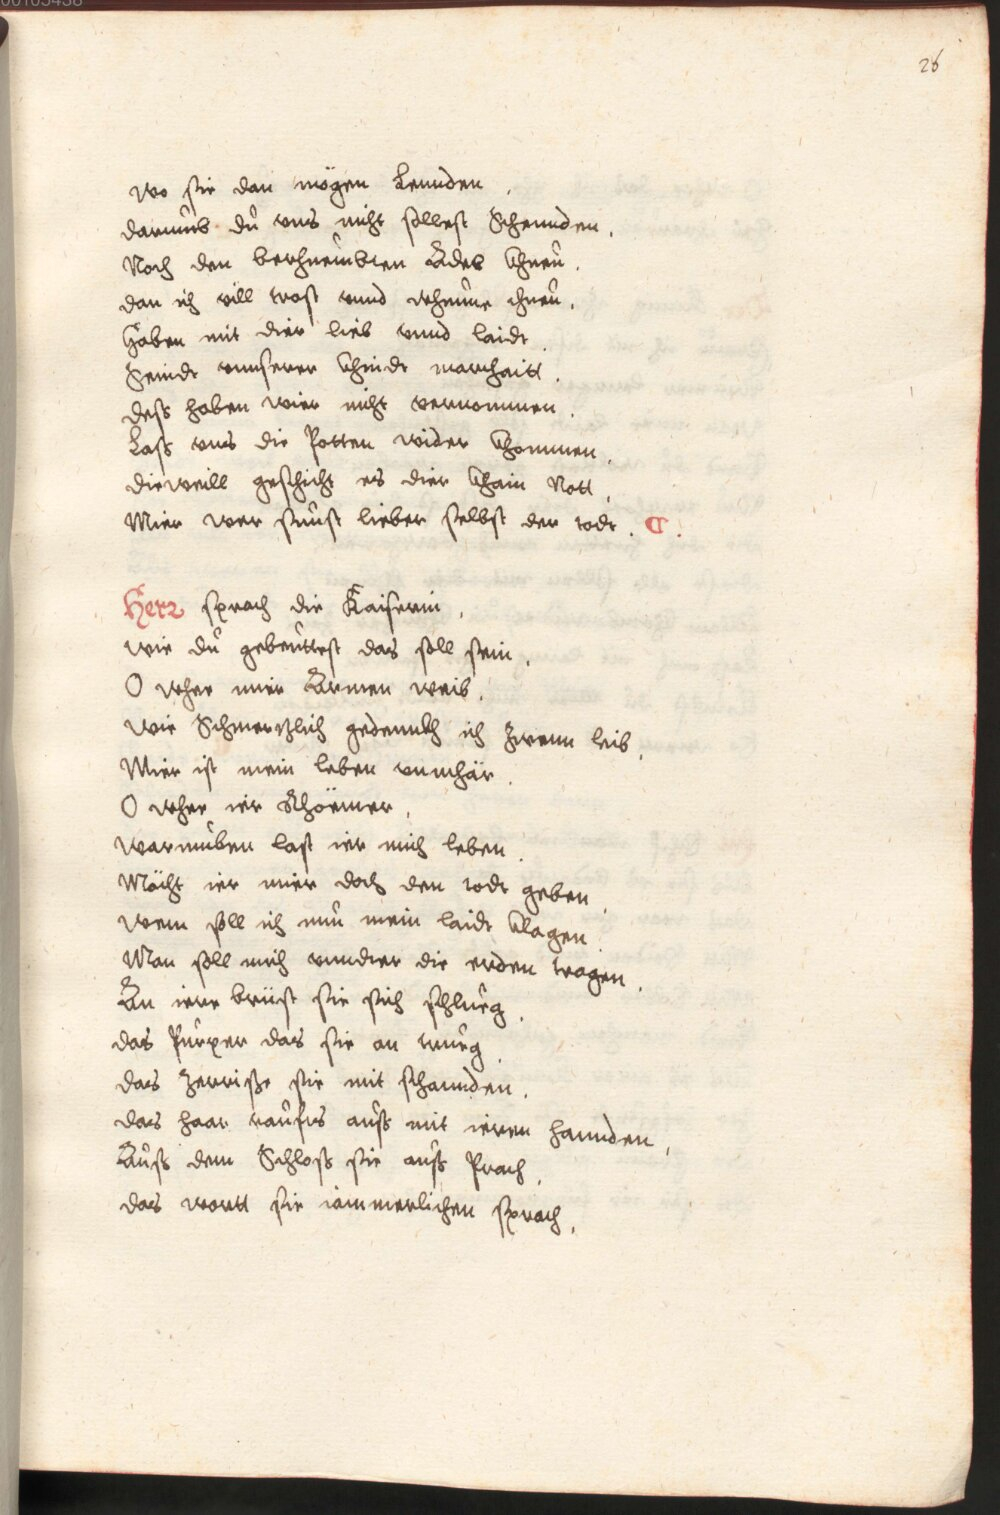 00105438
26
wo sie dan mögen Lennden.
darumb du vns nicht sollest Schennden.
Noch den berhuembten Adel khnen.
dan ich vill trost vnnd rhenne ihnen.
Haben mit dier lieb vnnd laidt.
Seindt vnnserer khindt warhaitt.
dess haben wier nicht vernommen.
Lass vns die Potten wider khommen.
dieweill geschicht es dier khain Nott.
Mier wer sünst lieber selbst der todt. C.
Herr sprach die Kaiserin.
wie du gebeuttest das soll sein.
O whee mier Armen weib.
wie Schmertzlich gedennckh ich Zwenn leib.
Mier ist mein leben vnmhär.
O whee ier Rhömer.
warumben last ier mich leben.
Möcht ier mier doch den todt geben.
wem soll ich nun mein laidt klagen.
Man soll mich vnnder die erden tragen.
An iere brüst sie sich schlueg.
das Purper das sie an trueg.
das Zerrisse sie mit schannden.
das haar raufts auss mit ieren hannden.
Auss dem Schloss sie auss Prach.
das wortt sie iämmerlichen sprach.